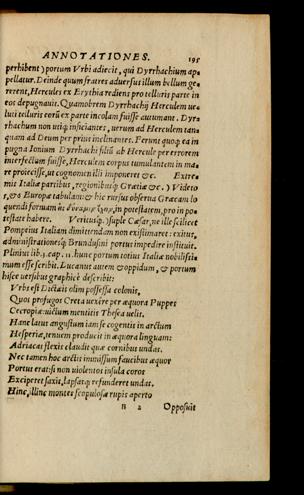 ANNOTATIONES. 195
perhibent) portum Vrbi adiecit, qui Dyrrhachium ap⸗
pellatur. Deinde quum fratres aduersus illum bellum ge⸗
rerent, Hercules ex Erythia rediens pro telluris parte in
eos depugnauit. Quamobrem Dyrrhachij Herculem ue⸗
luti telluris eorũ ex parte incolam fuisse autumant. Dyr⸗
rhachum non utiq; inficiantes, uerum ad Herculem tan⸗
quam ad Deum per prius inclinantes. Ferunt quoq; ea in
pugna Ionium Dyrrhachi filiũ ab Hercule per errorem
interfectum fuisse, Herculem corpus tumulantem in ma⸗
re proiecisse, ut cognomen illi imponeret &c. Extre⸗
mis Italiæ partibus, regionibusq; Græciæ &c.) Videto
ex Europæ tabulam: & hic rursus obserua Græcam lo
quendi formam ἐν δυνάμει ἔχειν, in potestatem, pro in po⸗
testate habere. Veritusq́;, supple Cæsar, ne ille scilicet
Pompeius Italiam dimittendam non existimaret: exitus,
administrationesq; Brundusini portus impedire instituit.
Plinius lib. 3. cap. 11. hunc portum totius Italiæ nobilissi⸗
mum esse scribit. Lucanus autem & oppidum, & portum
hisce uersibus graphicè describit:
Vrbs est Dictæis olim possessa colonis,
Quos profugos Creta uexere per æquora Puppes
Cecropiæ: uictum mentitis Thesea uelis.
Hanc latus angustum iam se cogentis in arctum
Hesperiæ, tenuem producit in æquora linguam:
Adriacas flexis claudit quæ cornibus undas.
Nec tamen hoc arctis immissum faucibus æquor
Portus erat: si non uiolentos insula coros
Exciperet saxis, lapsasq́; refunderet undas.
Hinc, illinc montes scopulosæ rupis aperto
n 2 Opposuit